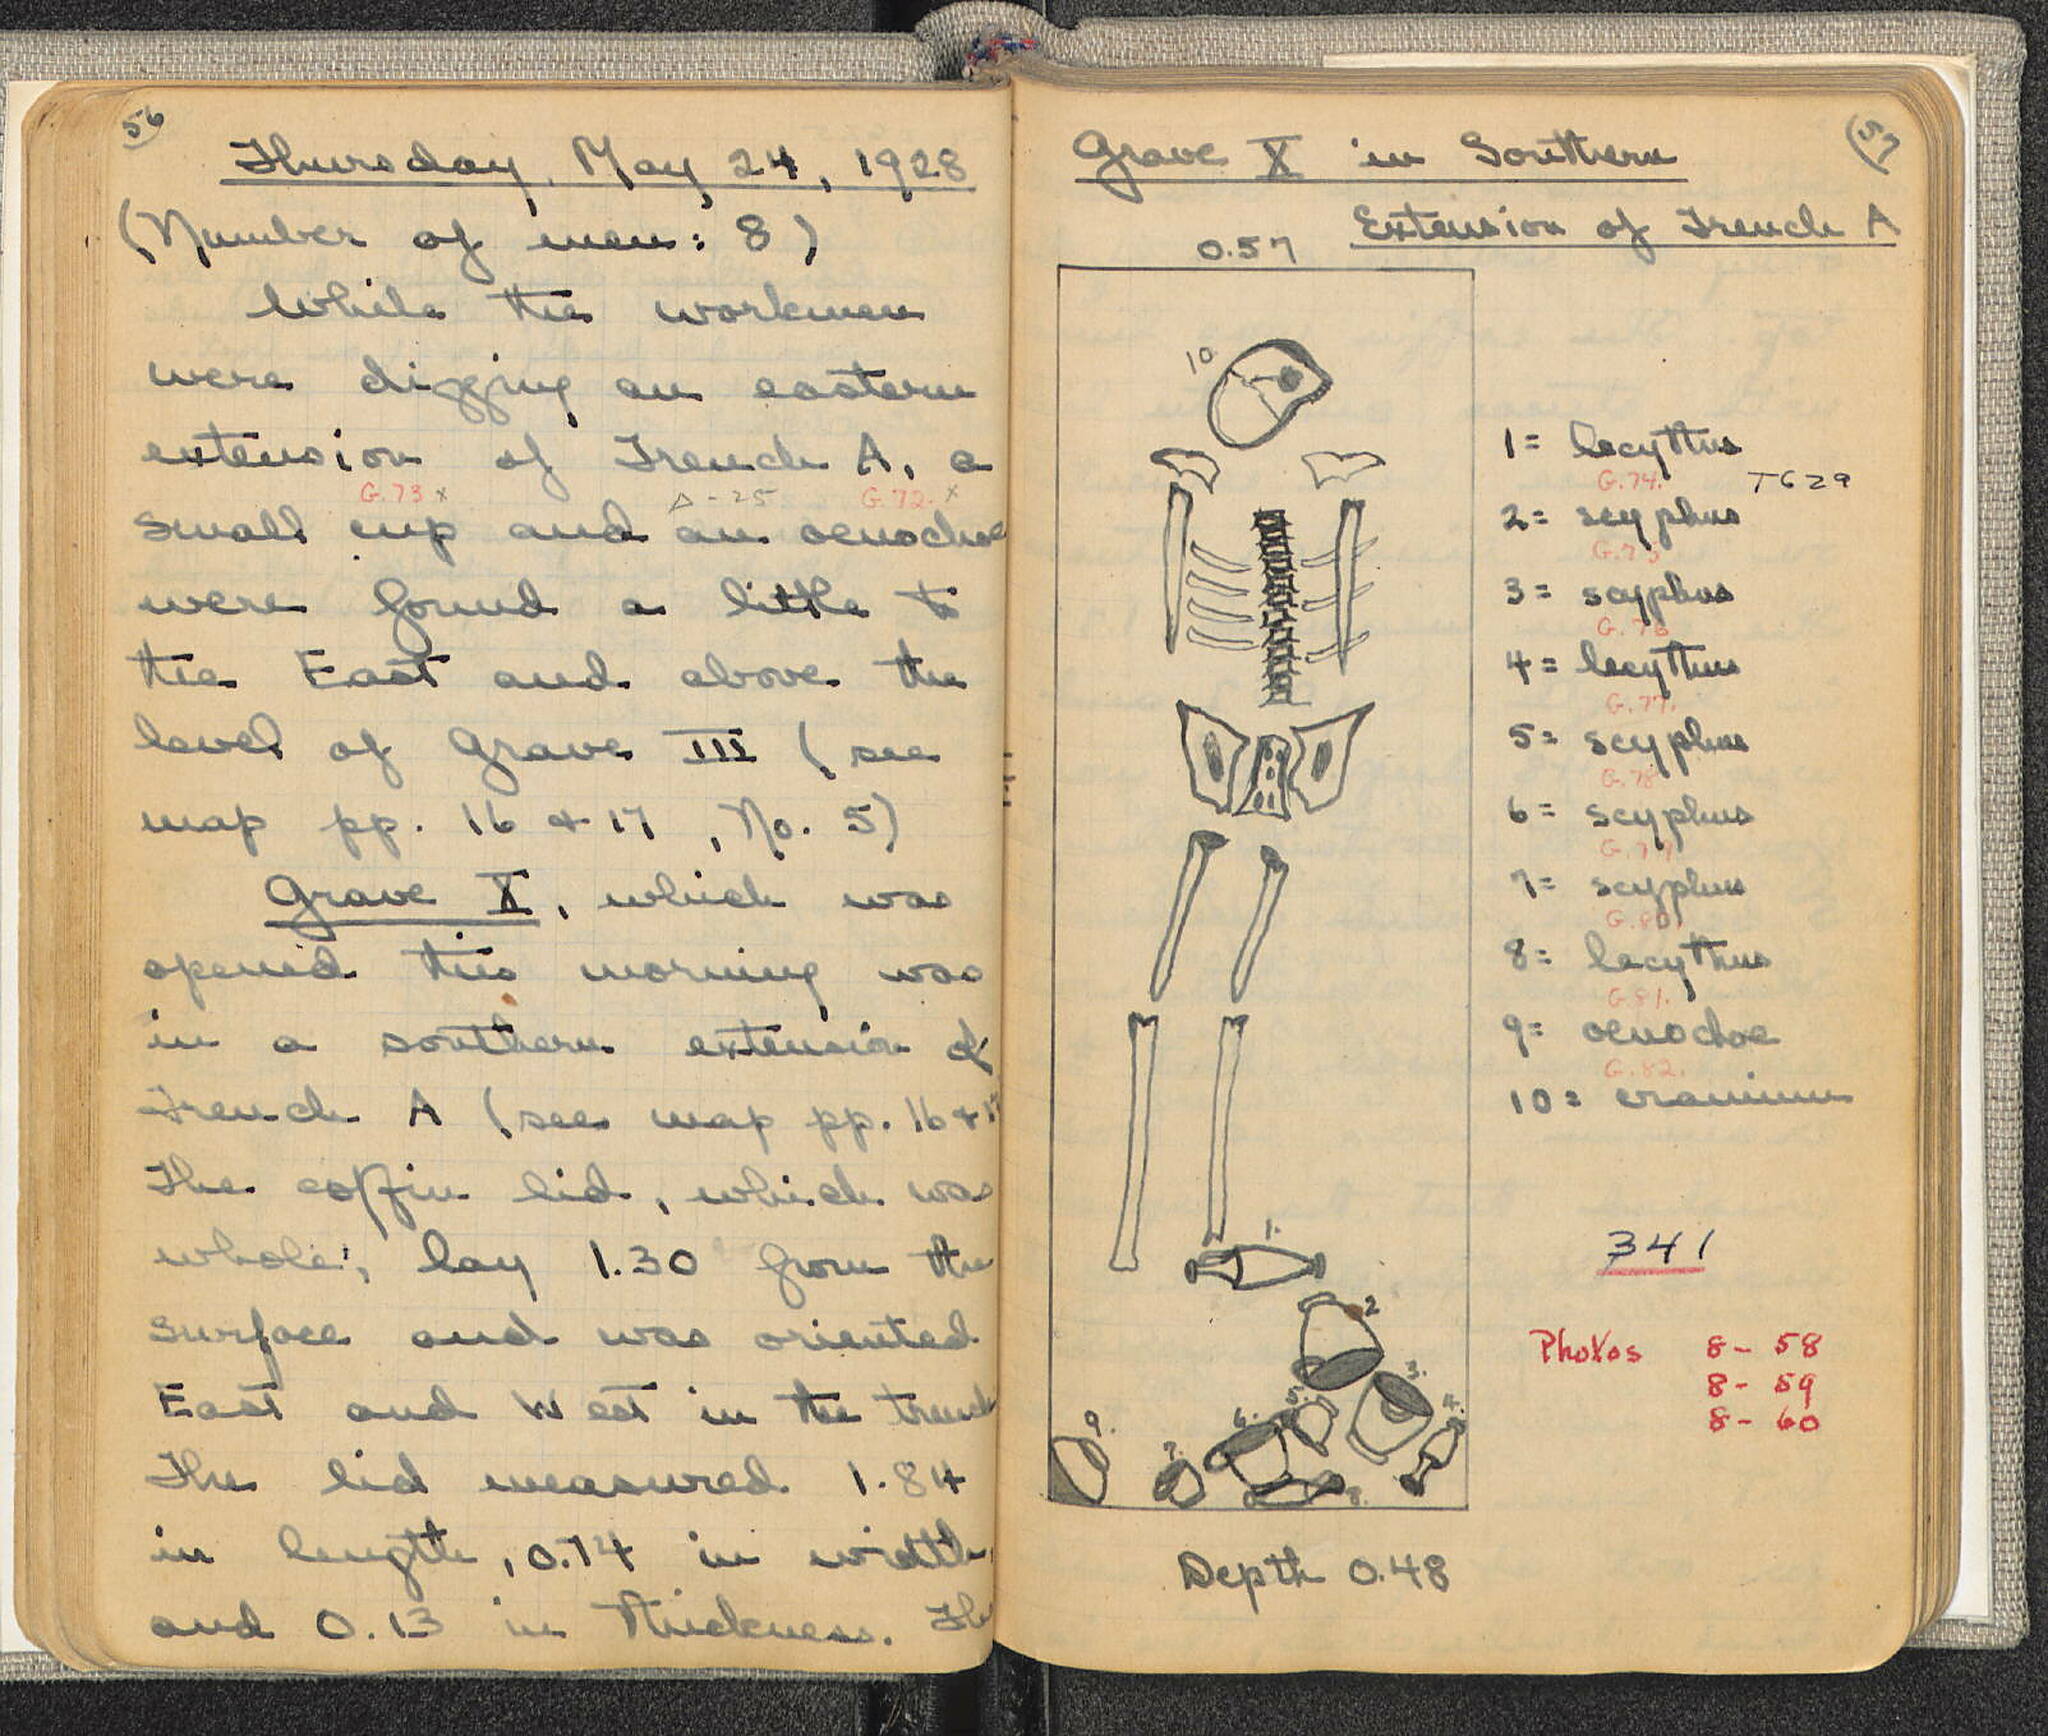 56
Thursday, May 24, 1928
(Number of men: 8)
While the workmen
were digging an eastern
extension of Trench A, a
G.73 x Δ-25 G.72. x
small cup and an oenochoe
were found a little to
the East and above the
level of Grave III (see
map pp. 16 & 17, No. 5)
Grave X, which was
opened this morning was
in a southern extension of
Trench A (see map pp. 16 & 17
The coffin lid, which was
whole, lay 1.30 from the
surface and was oriented
East and West in the trench
The lid measured 1.84
in length, 0.74 in width,
and 0.13 in thickness. The
57
Grave X in Southern
Extension of Trench A
0.57
10
1.
2
3.
4.
5.
6.
7.
8.
9.
1= lecythus
G.74. T629
2= scyphus
G.75
3= scyphus
G.76
4= lecythus
G.77.
5= scyphus
G.78
6= scyphus
G.79
7= scyphus
G.80.
8= lecythus
G.81.
9= oenochoe
G.82.
10= cranium
341
Photos 8-58
8-59
8-60
Depth 0.48